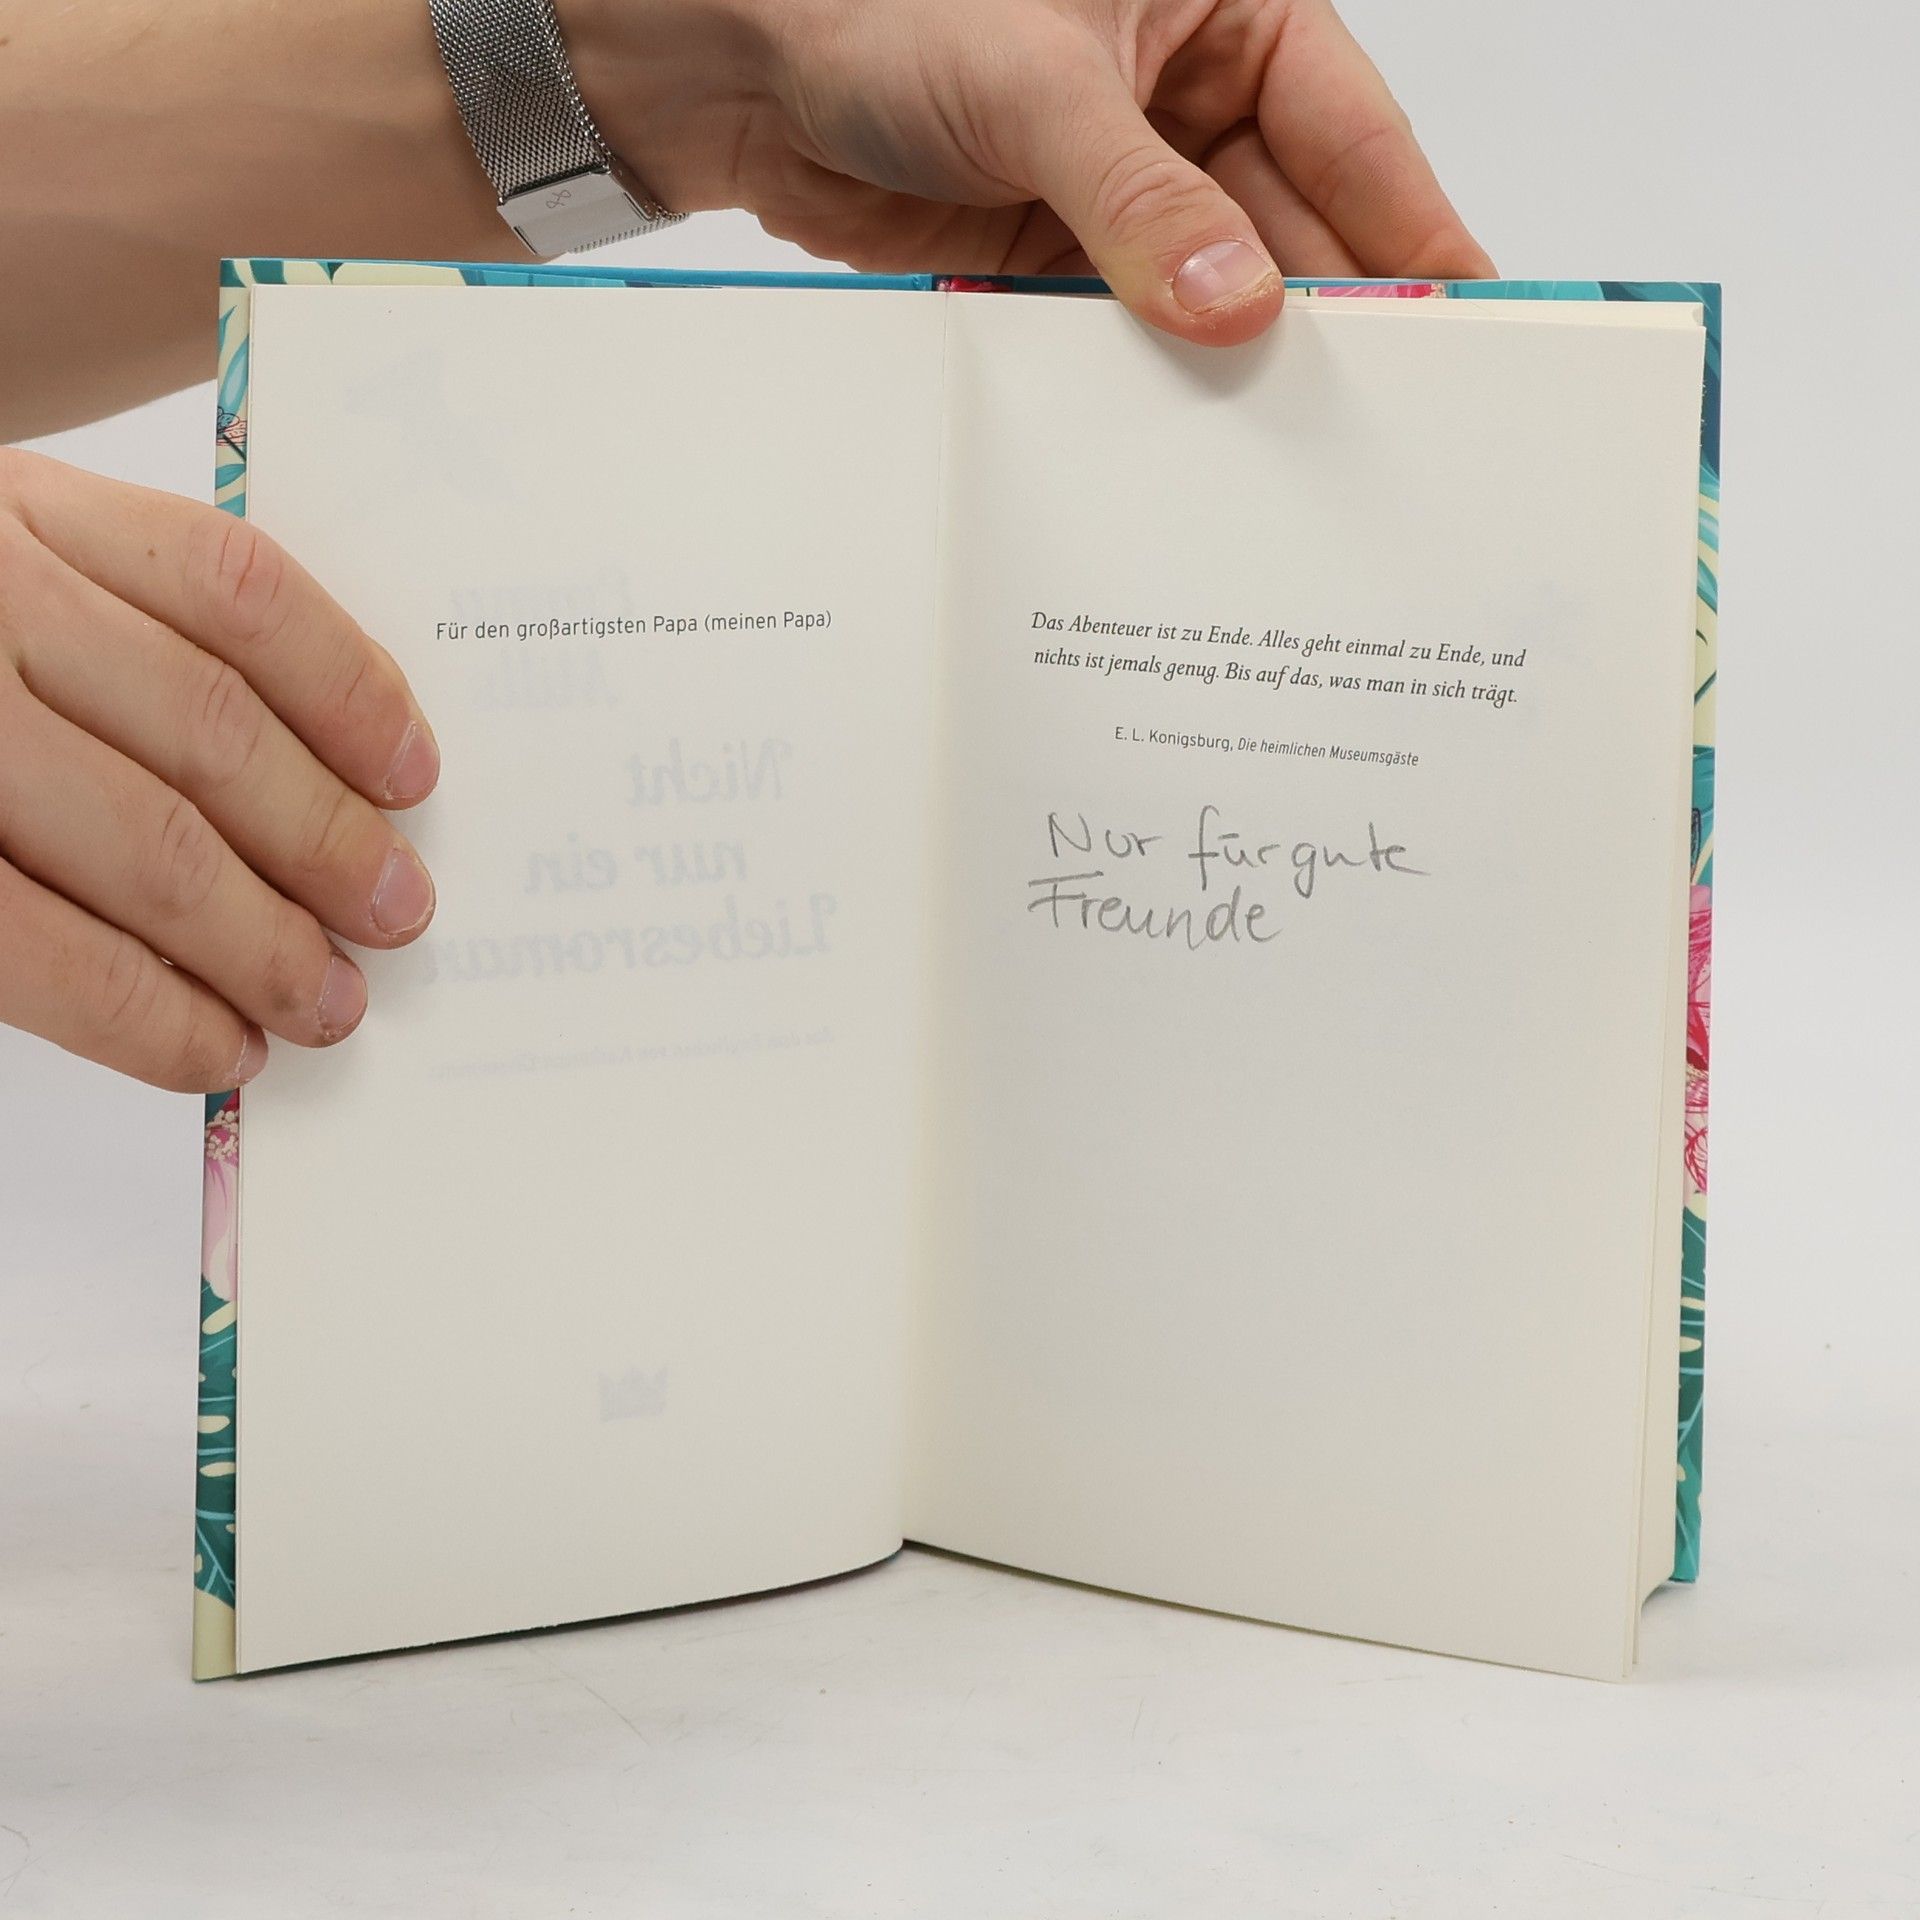 Für den großartigsten Papa (meinen Papa)
Das Abenteuer ist zu Ende. Alles geht einmal zu Ende, und
nichts ist jemals genug. Bis auf das, was man in sich trägt.
E. L. Konigsburg, Die heimlichen Museumsgäste
Nur für gute
Freunde
Nicht
nur ein
Liebesroman